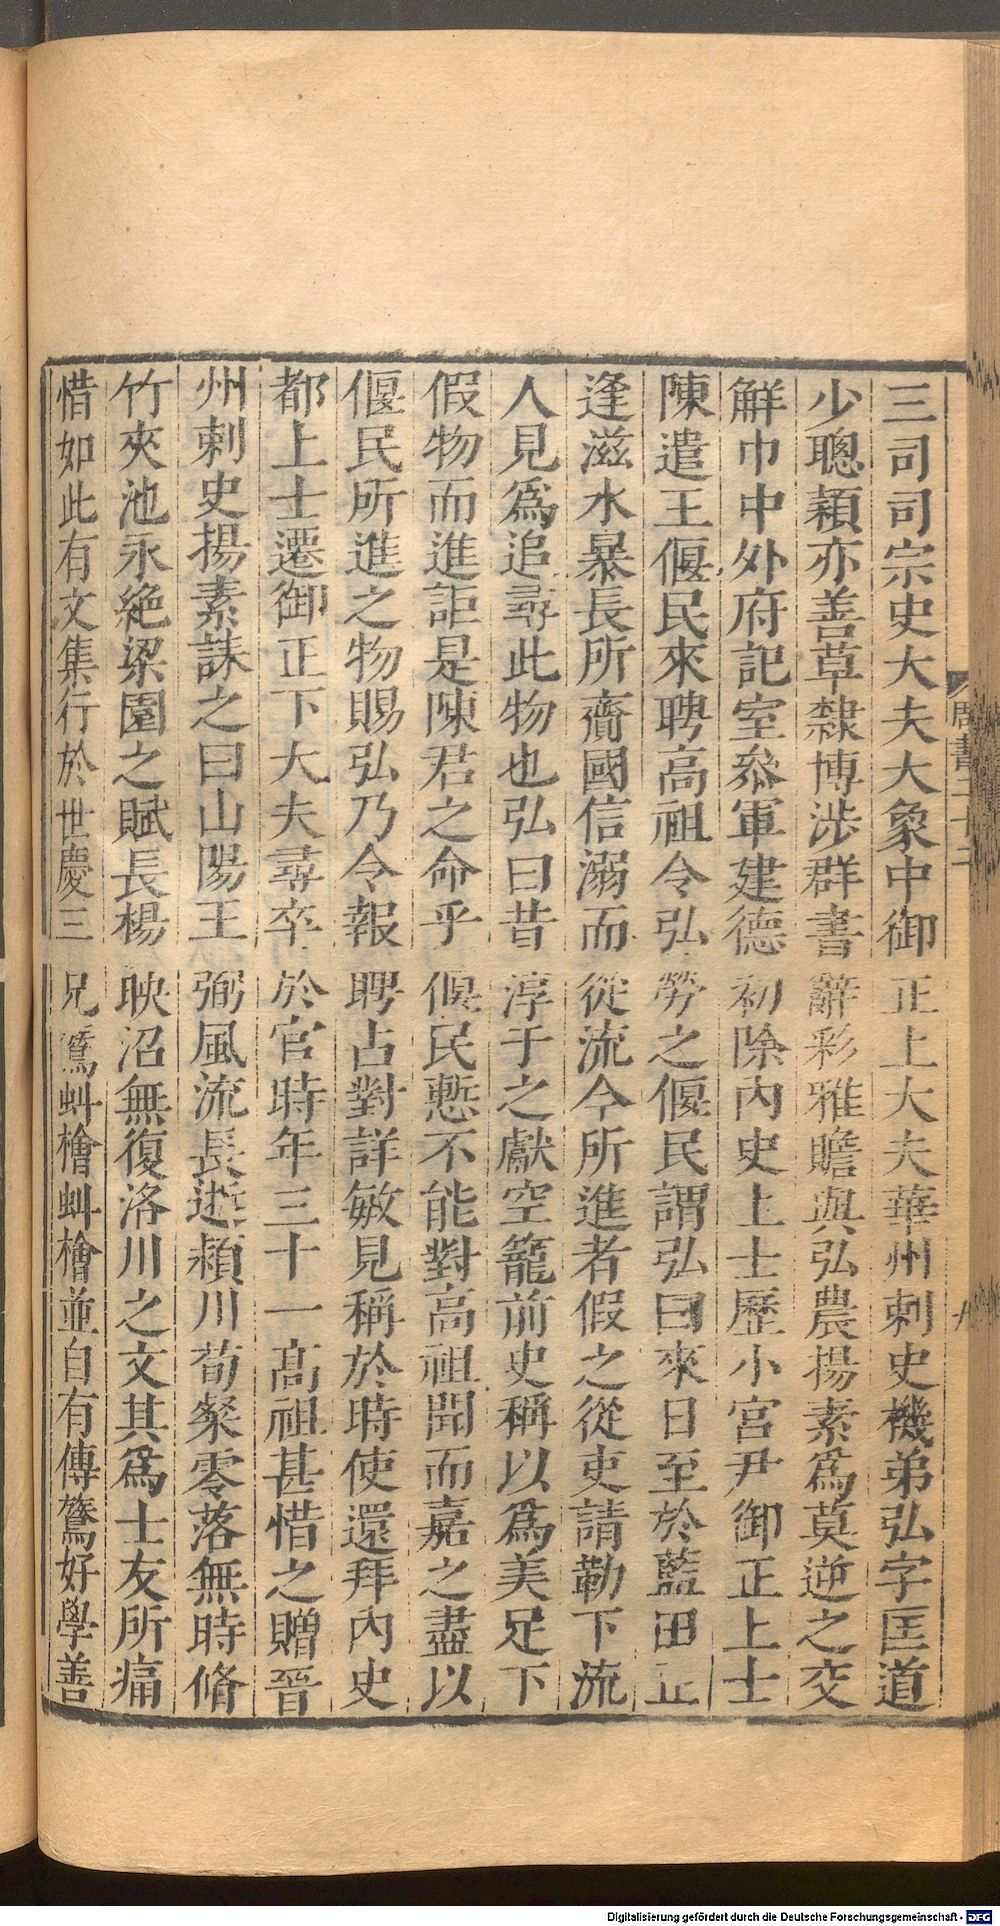 三司司宗史大夫大象中御正上大夫華州刺史機弟弘字匡道
少聰穎亦善草隸博涉群書辭彩雅贍與弘農揚素爲莫逆之交
解巾中外府記室叅軍建德初除內史上士歷小宮尹御正上士
陳遣王偃民來聘高祖令弘勞之偃民謂弘曰來日至於藍田正
逢滋水暴長所齎國信溺而從流今所進者假之從吏請勒下流
人見爲追尋此物也弘曰昔淳于之獻空籠前史稱以爲美足下
假物而進詎是陳君之命乎偃民慙不能對高祖聞而嘉之盡以
偃民所進之物賜弘乃令報聘占對詳敏見稱於時使還拜內史
都上士遷御正下大夫尋卒於官時年三十一高祖甚惜之贈晉
州刺史揚素誄之曰山陽王弼風流長逝潁川荀粲零落無時脩
竹夾池永絕梁園之賦長楊映沼無復洛川之文其爲士友所痛
惜如此有文集行於世慶三兄鷟虯檜虯檜並自有傳鷟好學善
周書二十二
Digitalisierung gefördert durch die Deutsche Forschungsgemeinschaft - DFG